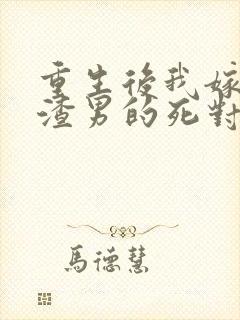 重生後我嫁
渣男的死對
馬德慧